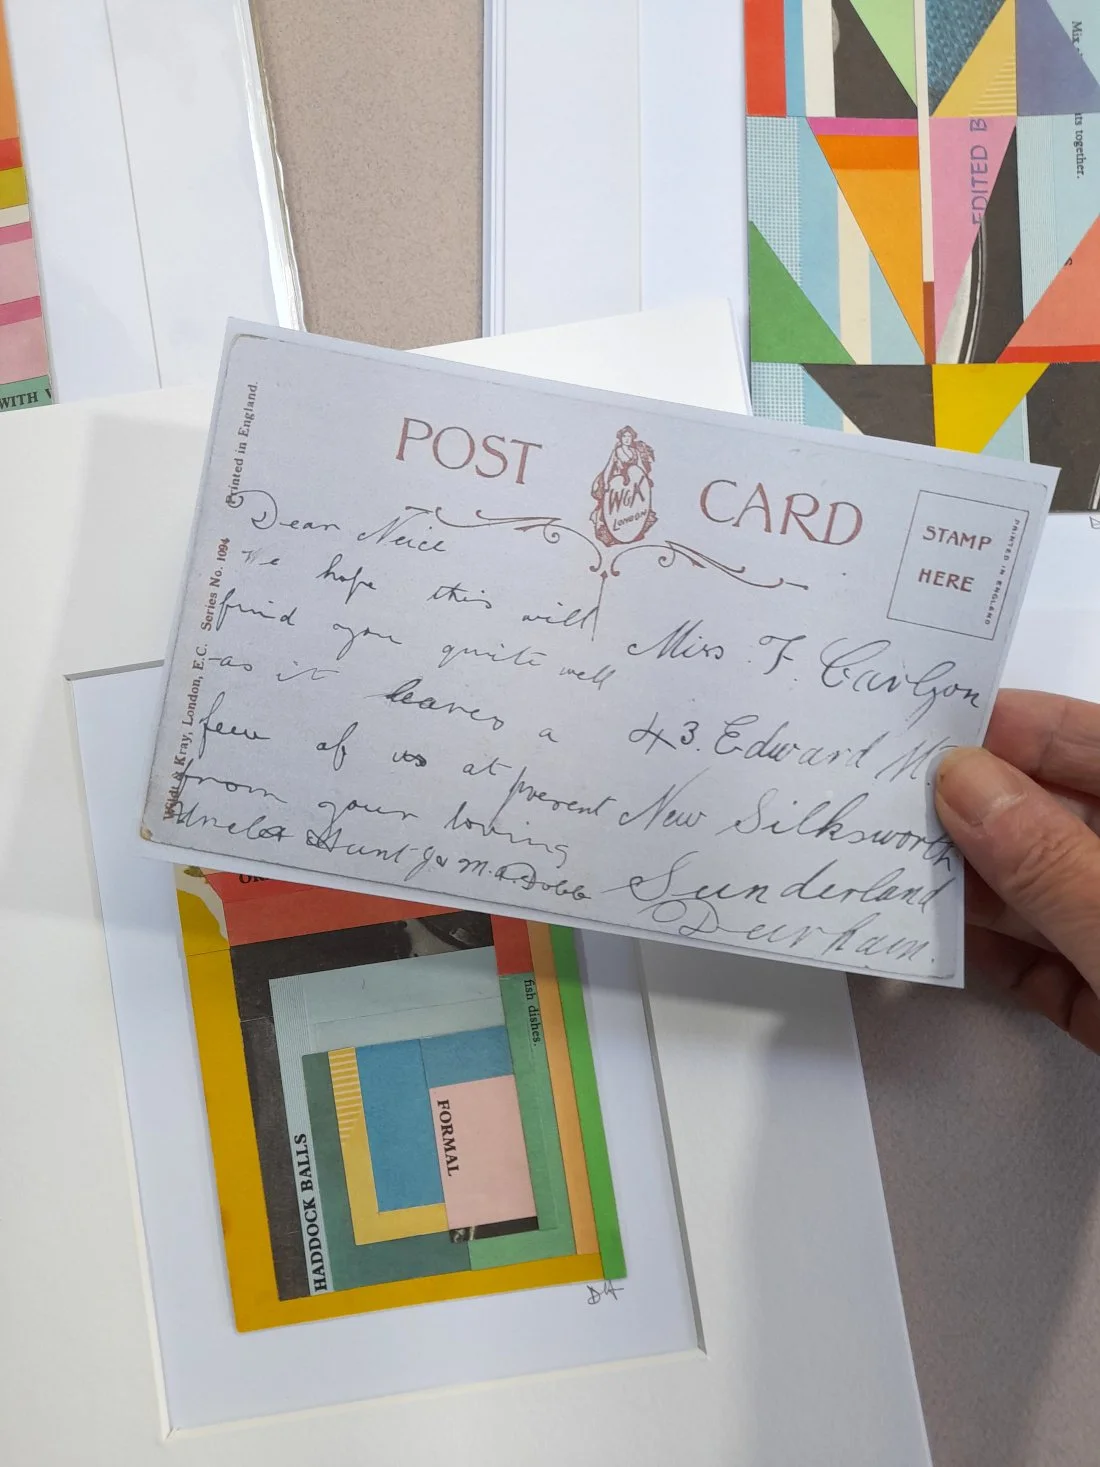 POST CARD
W&K
LONDON
STAMP
HERE
PRINTED IN ENGLAND
Printed in England.
Wildt & Kray, London, E.C. Series No. 1094
Dear Neice
We hope this will
find you quite well
as it leaves a
few of us at present
from your loving
Uncle & Aunt J & M.A. Dobb
Miss F.
43. Edward St.
New Silksworth
Sunderland
Durham.
WITH
Mix
ts together.
EDITED B
fish dishes.
FORMAL
HADDOCK BALLS
DH